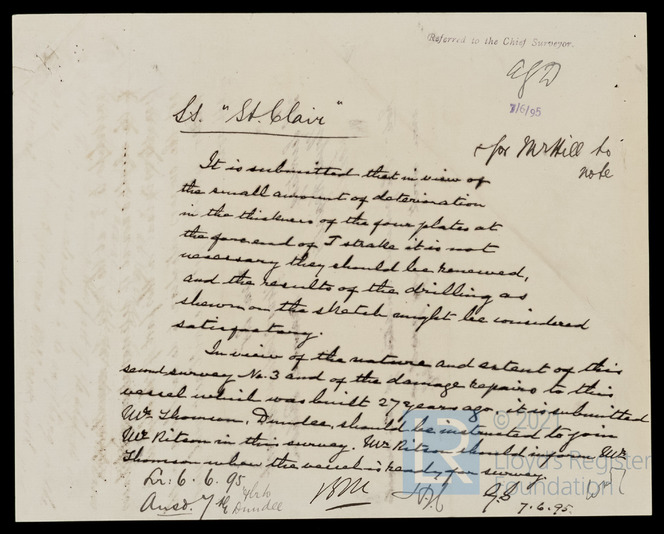 Referred to the Chief Surveyor.
7/6/95
Ss. "St. Clair"
& for Mr Hill to
note
It is submitted that in view of
the small amount of deterioration
in the thickness of the four plates at
the fore end of J strake it is not
necessary they should be renewed,
and the results of the drilling as
shewn on the sketch might be considered
satisfactory.
In view of the nature and extent of this
second survey No. 3 and of the damage repairs to this
vessel which was built 27 years ago, it is submitted
Mr Thomson, Dundee, should be instructed to join
Mr Ritson in this survey. Mr Ritson should inform Mr
Thomson when the vessel is ready for survey.
Lr. 6.6.95
Ansd. 7th
Dundee
7.6.95.
© 2021
LR
Lloyd's Register
Foundation